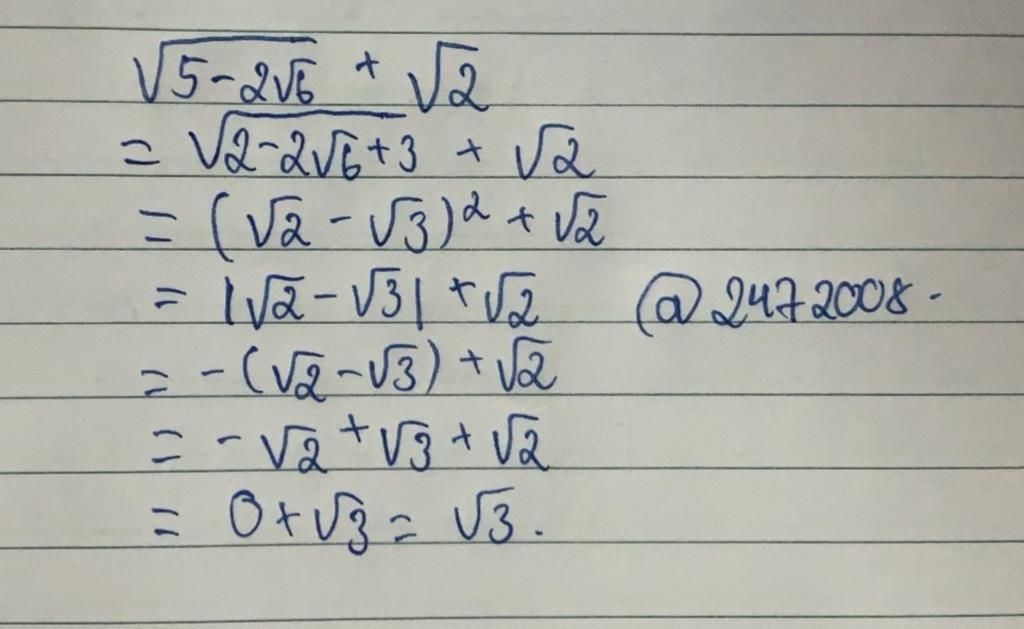 √(5-2√6) + √2
= √(2-2√6+3) + √2
= (√2 - √3)² + √2
= |√2 - √3| + √2 @2472008.
= -(√2-√3) + √2
= -√2 + √3 + √2
= 0 + √3 = √3.